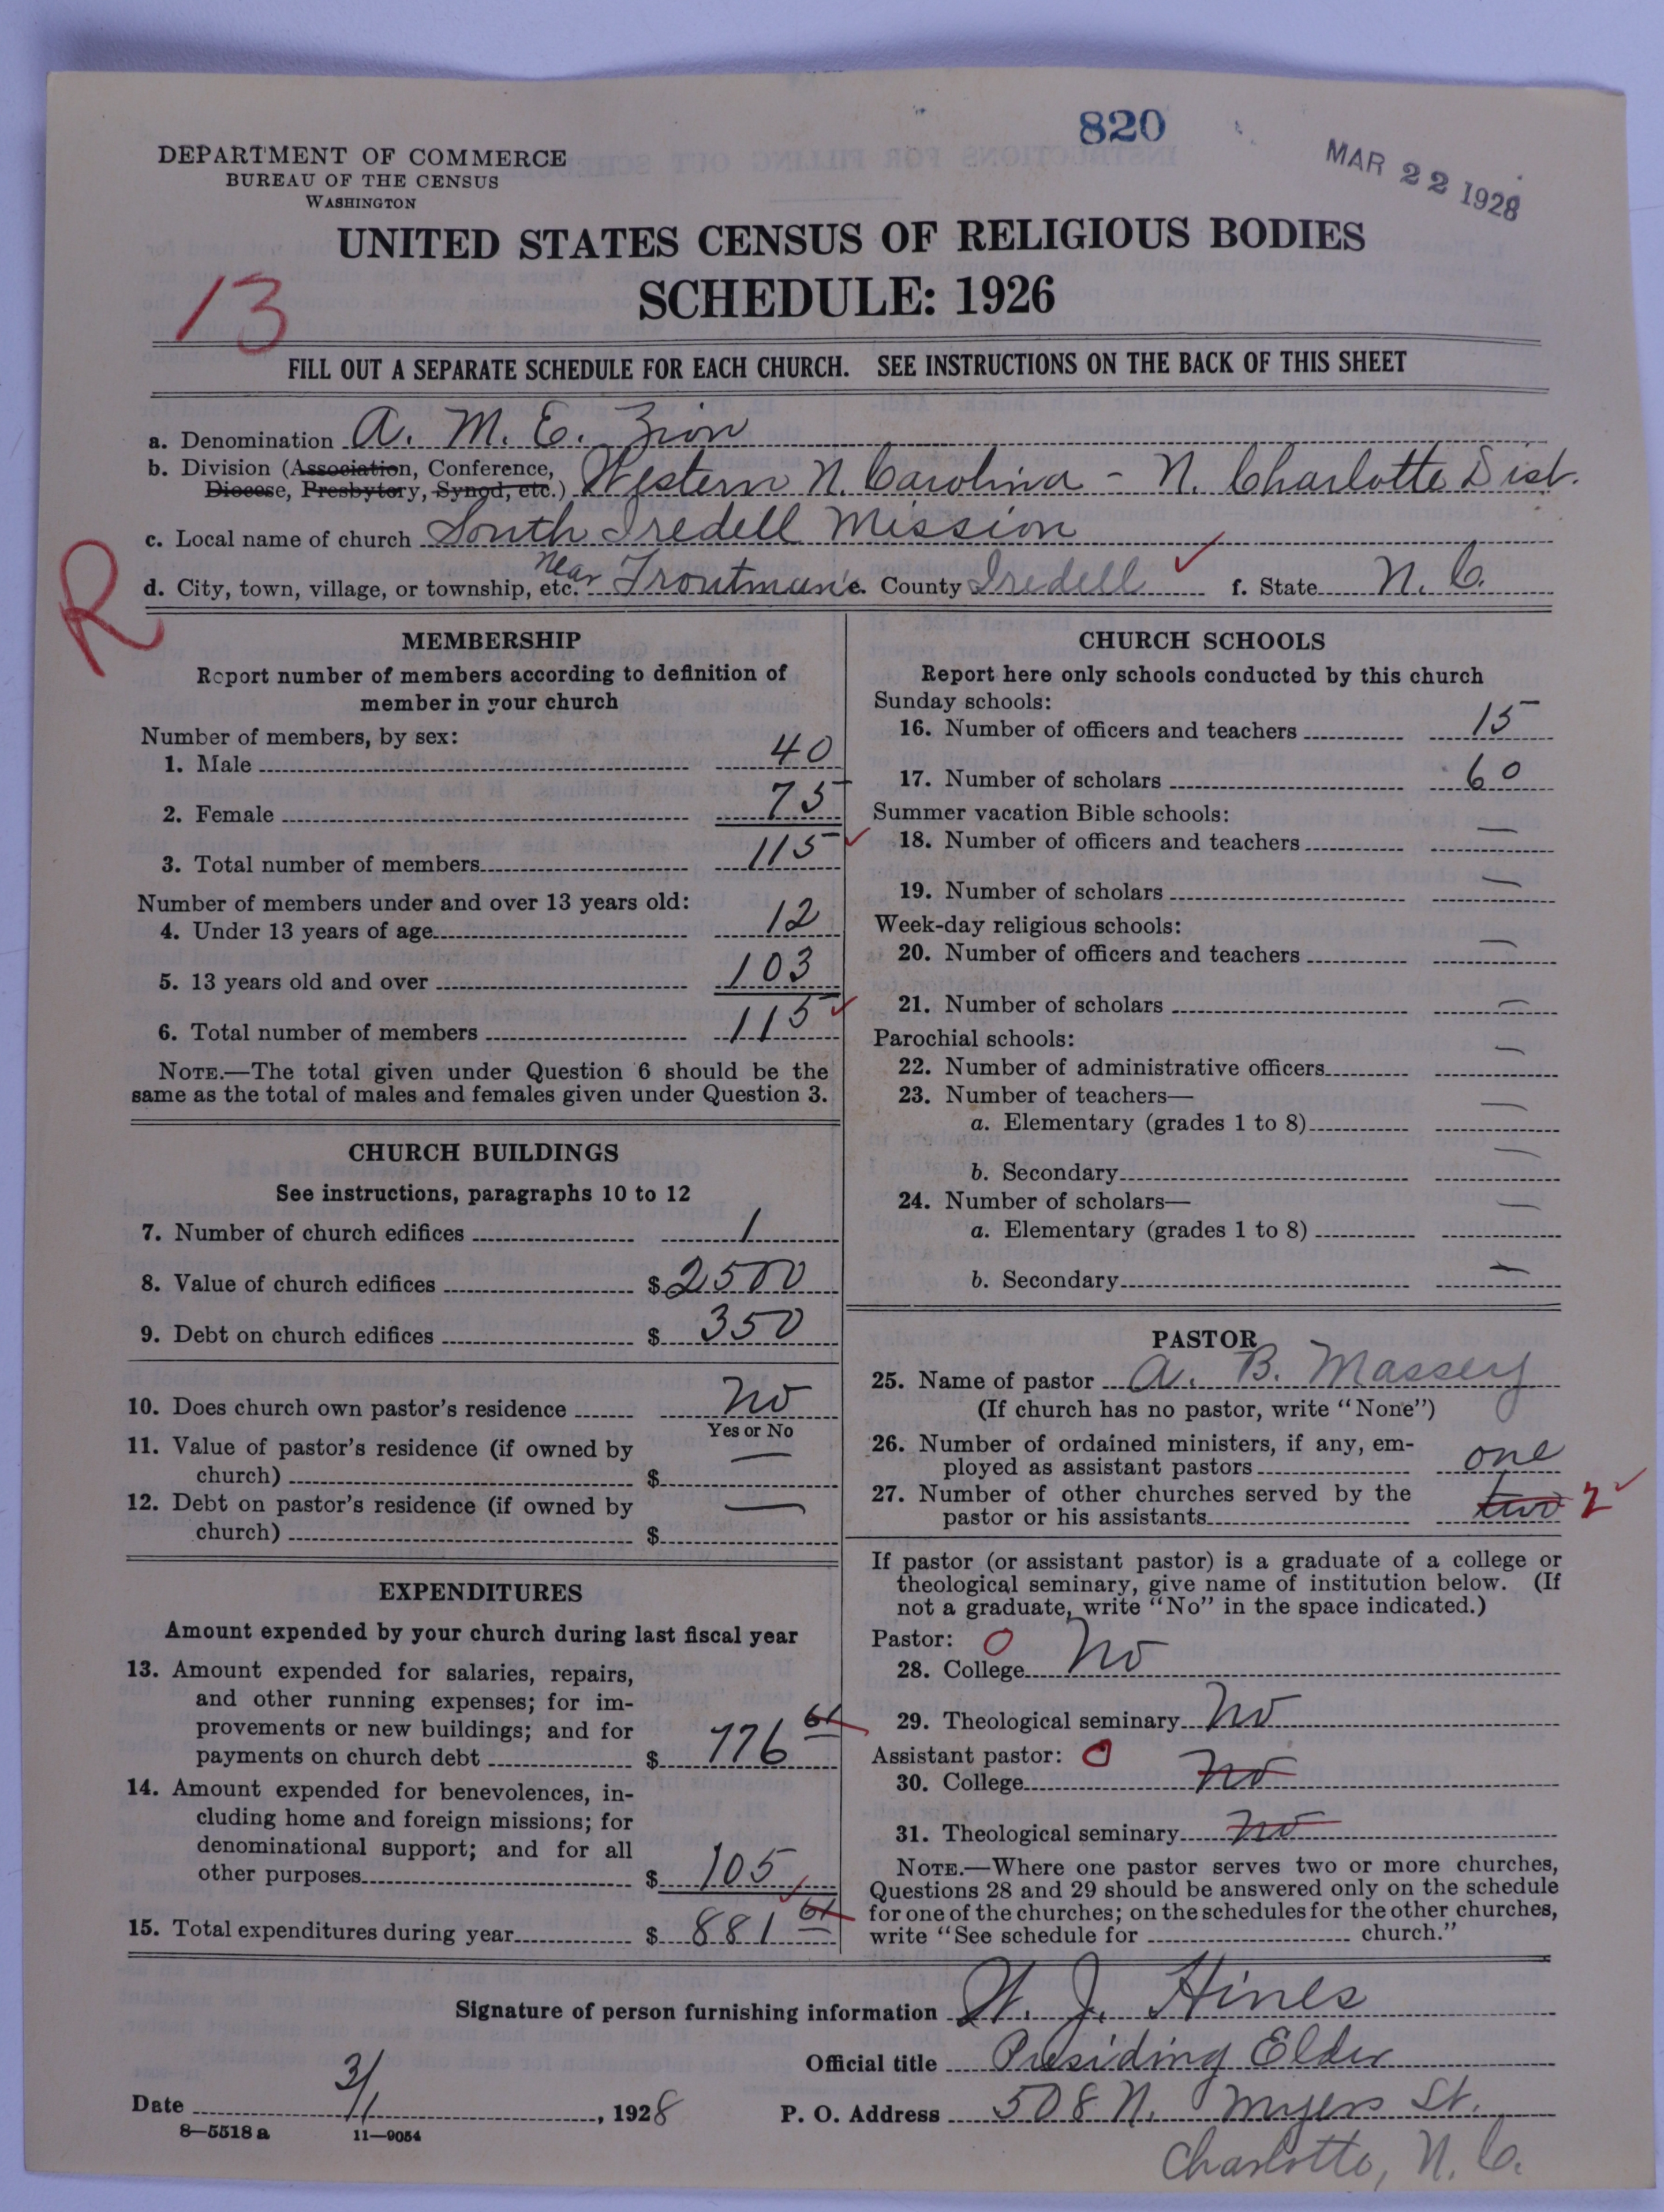 820
MAR 22 1928
DEPARTMENT OF COMMERCE
BUREAU OF THE CENSUS
WASHINGTON
UNITED STATES CENSUS OF RELIGIOUS BODIES
SCHEDULE: 1926
13
FILL OUT A SEPARATE SCHEDULE FOR EACH CHURCH. SEE INSTRUCTIONS ON THE BACK OF THIS SHEET
a. Denomination A. M. E. Zion
b. Division (Association, Conference, Diocese, Presbytery, Synod, etc.) Western N. Carolina - N. Charlotte Dist.
c. Local name of church South Iredell Mission
R
d. City, town, village, or township, etc. Near Troutman e. County Iredell f. State N. C.
MEMBERSHIP
Report number of members according to definition of
member in your church
Number of members, by sex:
1. Male 40
2. Female 75
3. Total number of members 115
Number of members under and over 13 years old:
4. Under 13 years of age 12
5. 13 years old and over 103
6. Total number of members 115
NOTE.—The total given under Question 6 should be the
same as the total of males and females given under Question 3.
CHURCH BUILDINGS
See instructions, paragraphs 10 to 12
7. Number of church edifices 1
8. Value of church edifices $ 2500
9. Debt on church edifices $ 350
10. Does church own pastor's residence No
Yes or No
11. Value of pastor's residence (if owned by
church) $ —
12. Debt on pastor's residence (if owned by
church) $ —
EXPENDITURES
Amount expended by your church during last fiscal year
13. Amount expended for salaries, repairs,
and other running expenses; for im-
provements or new buildings; and for
payments on church debt $ 776 61
14. Amount expended for benevolences, in-
cluding home and foreign missions; for
denominational support; and for all
other purposes $ 105
15. Total expenditures during year $ 881 61
CHURCH SCHOOLS
Report here only schools conducted by this church
Sunday schools:
16. Number of officers and teachers 15
17. Number of scholars 60
Summer vacation Bible schools:
18. Number of officers and teachers —
19. Number of scholars —
Week-day religious schools:
20. Number of officers and teachers —
21. Number of scholars —
Parochial schools:
22. Number of administrative officers —
23. Number of teachers—
a. Elementary (grades 1 to 8) —
b. Secondary —
24. Number of scholars—
a. Elementary (grades 1 to 8) —
b. Secondary —
PASTOR
25. Name of pastor A. B. Massey
(If church has no pastor, write "None")
26. Number of ordained ministers, if any, em-
ployed as assistant pastors one
27. Number of other churches served by the
pastor or his assistants two 2
If pastor (or assistant pastor) is a graduate of a college or
theological seminary, give name of institution below. (If
not a graduate, write "No" in the space indicated.)
Pastor: 0
28. College No
29. Theological seminary No
Assistant pastor: 0
30. College No
31. Theological seminary No
NOTE.—Where one pastor serves two or more churches,
Questions 28 and 29 should be answered only on the schedule
for one of the churches; on the schedules for the other churches,
write "See schedule for church."
Signature of person furnishing information W. J. Hines
Official title Presiding Elder
Date 3/1, 1928 P. O. Address 508 N. Myers St.
8—5518 a 11—9054
Charlotte, N. C.